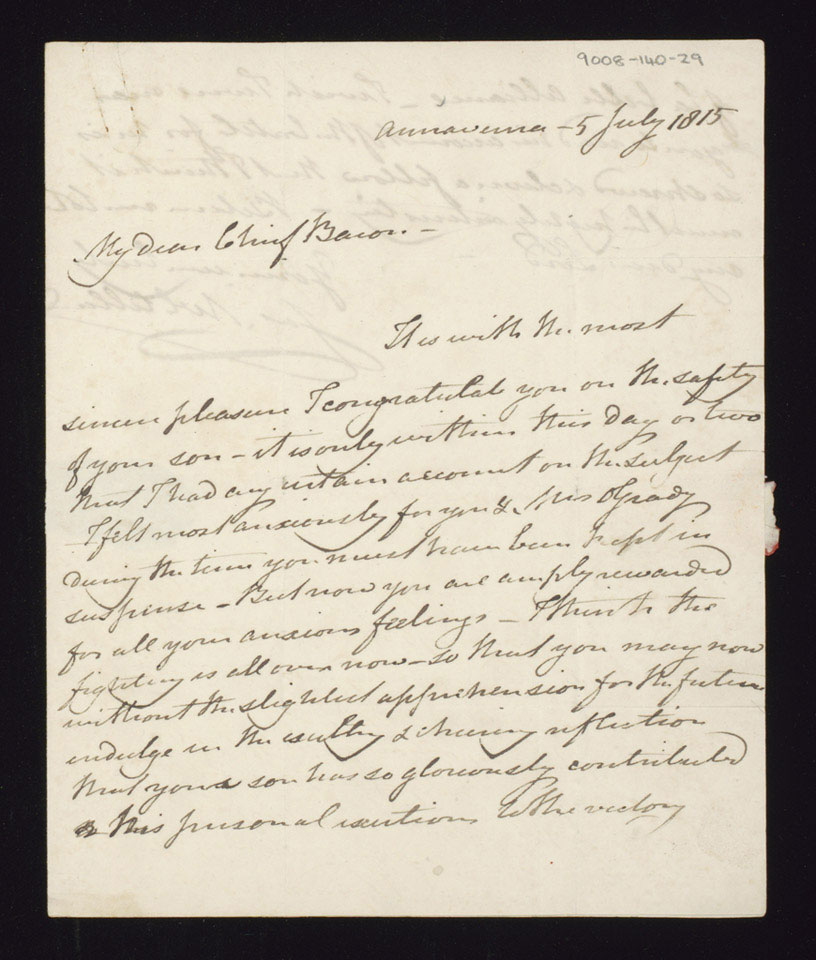 9008-140-29
Annaverna - 5 July 1815
My Dear Chief Baron -
It is with the most
sincere pleasure I congratulate you on the safety
of your son - it is only within this Day or two
that I had any certain account on the subject
- I felt most anxiously for you & Mrs O'Grady
during the time you must have been kept in
suspense - But now you are amply rewarded
for all your anxious feelings - I think the
fighting is all over now - so that you may now
without the slightest apprehension for the future
indulge in the exulting & cheering reflection
that your son has so gloriously contributed
his personal exertions to the victory